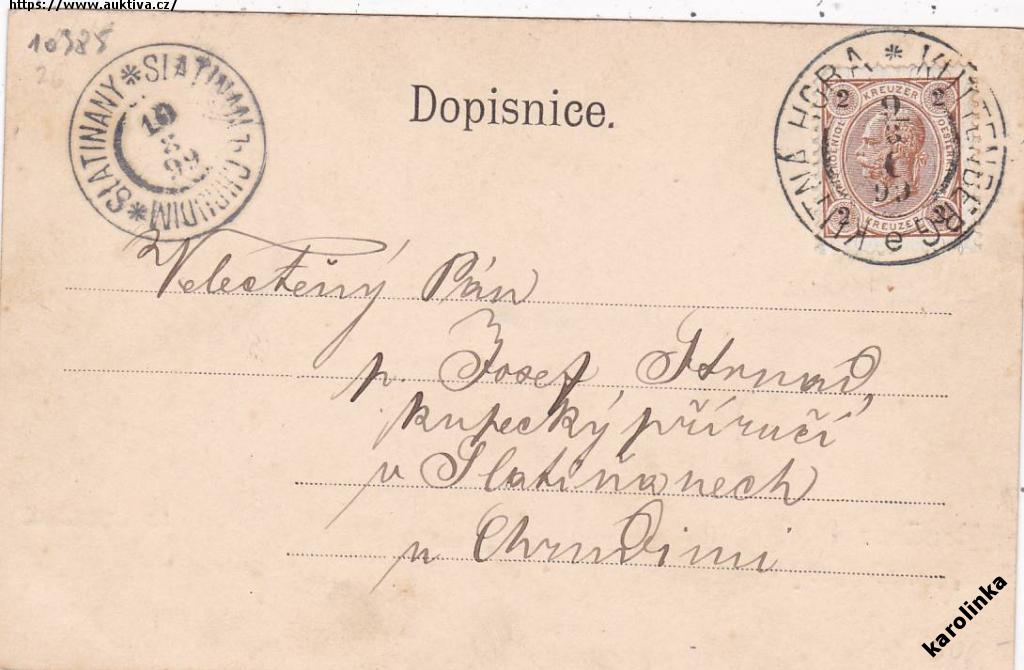 https://www.auktiva.cz/
10385
26
SLATINAN b. CHRUDIM * SLATINANY *
10
8
99
Dopisnice.
KUTTENBERG e KUTNÁ HORA *
9
8
99
2 KREUZER 2
2 KREUZER 2
Velectěný Pán
p. Josef Strnad,
kupecký příručí
v Slatiňanech
u Chrudimi
karolinka